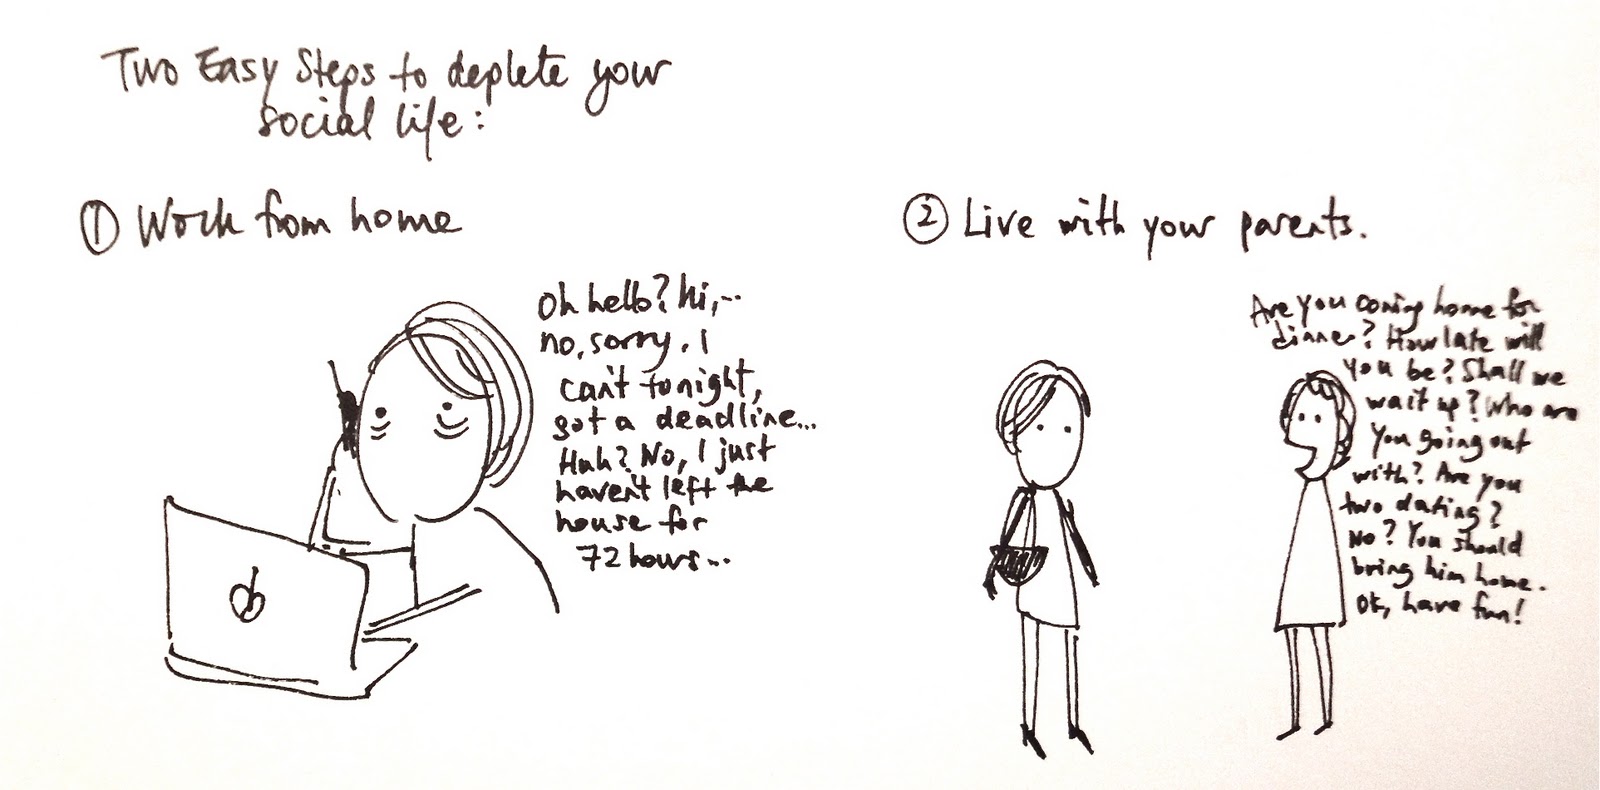 Two Easy Steps to deplete your
social life:
① Work from home
Oh hello? hi,..
no, sorry. I
can't tonight,
got a deadline...
Huh? No, I just
haven't left the
house for
72 hours...
② Live with your parents.
Are you coming home for
dinner? How late will
you be? Shall we
wait up? Who are
you going out
with? Are you
two dating?
No? You should
bring him home.
Ok, have fun!